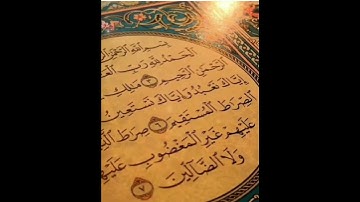 بسم الله الرحمن
الحمد لله رب الع
الرحمن الرحيم ٣ ملك
إياك نعبد وإياك نستعين
الصراط المستقيم ٦ صراط الذ
عليهم غير المغضوب عليهم
ولا الضالين ٧